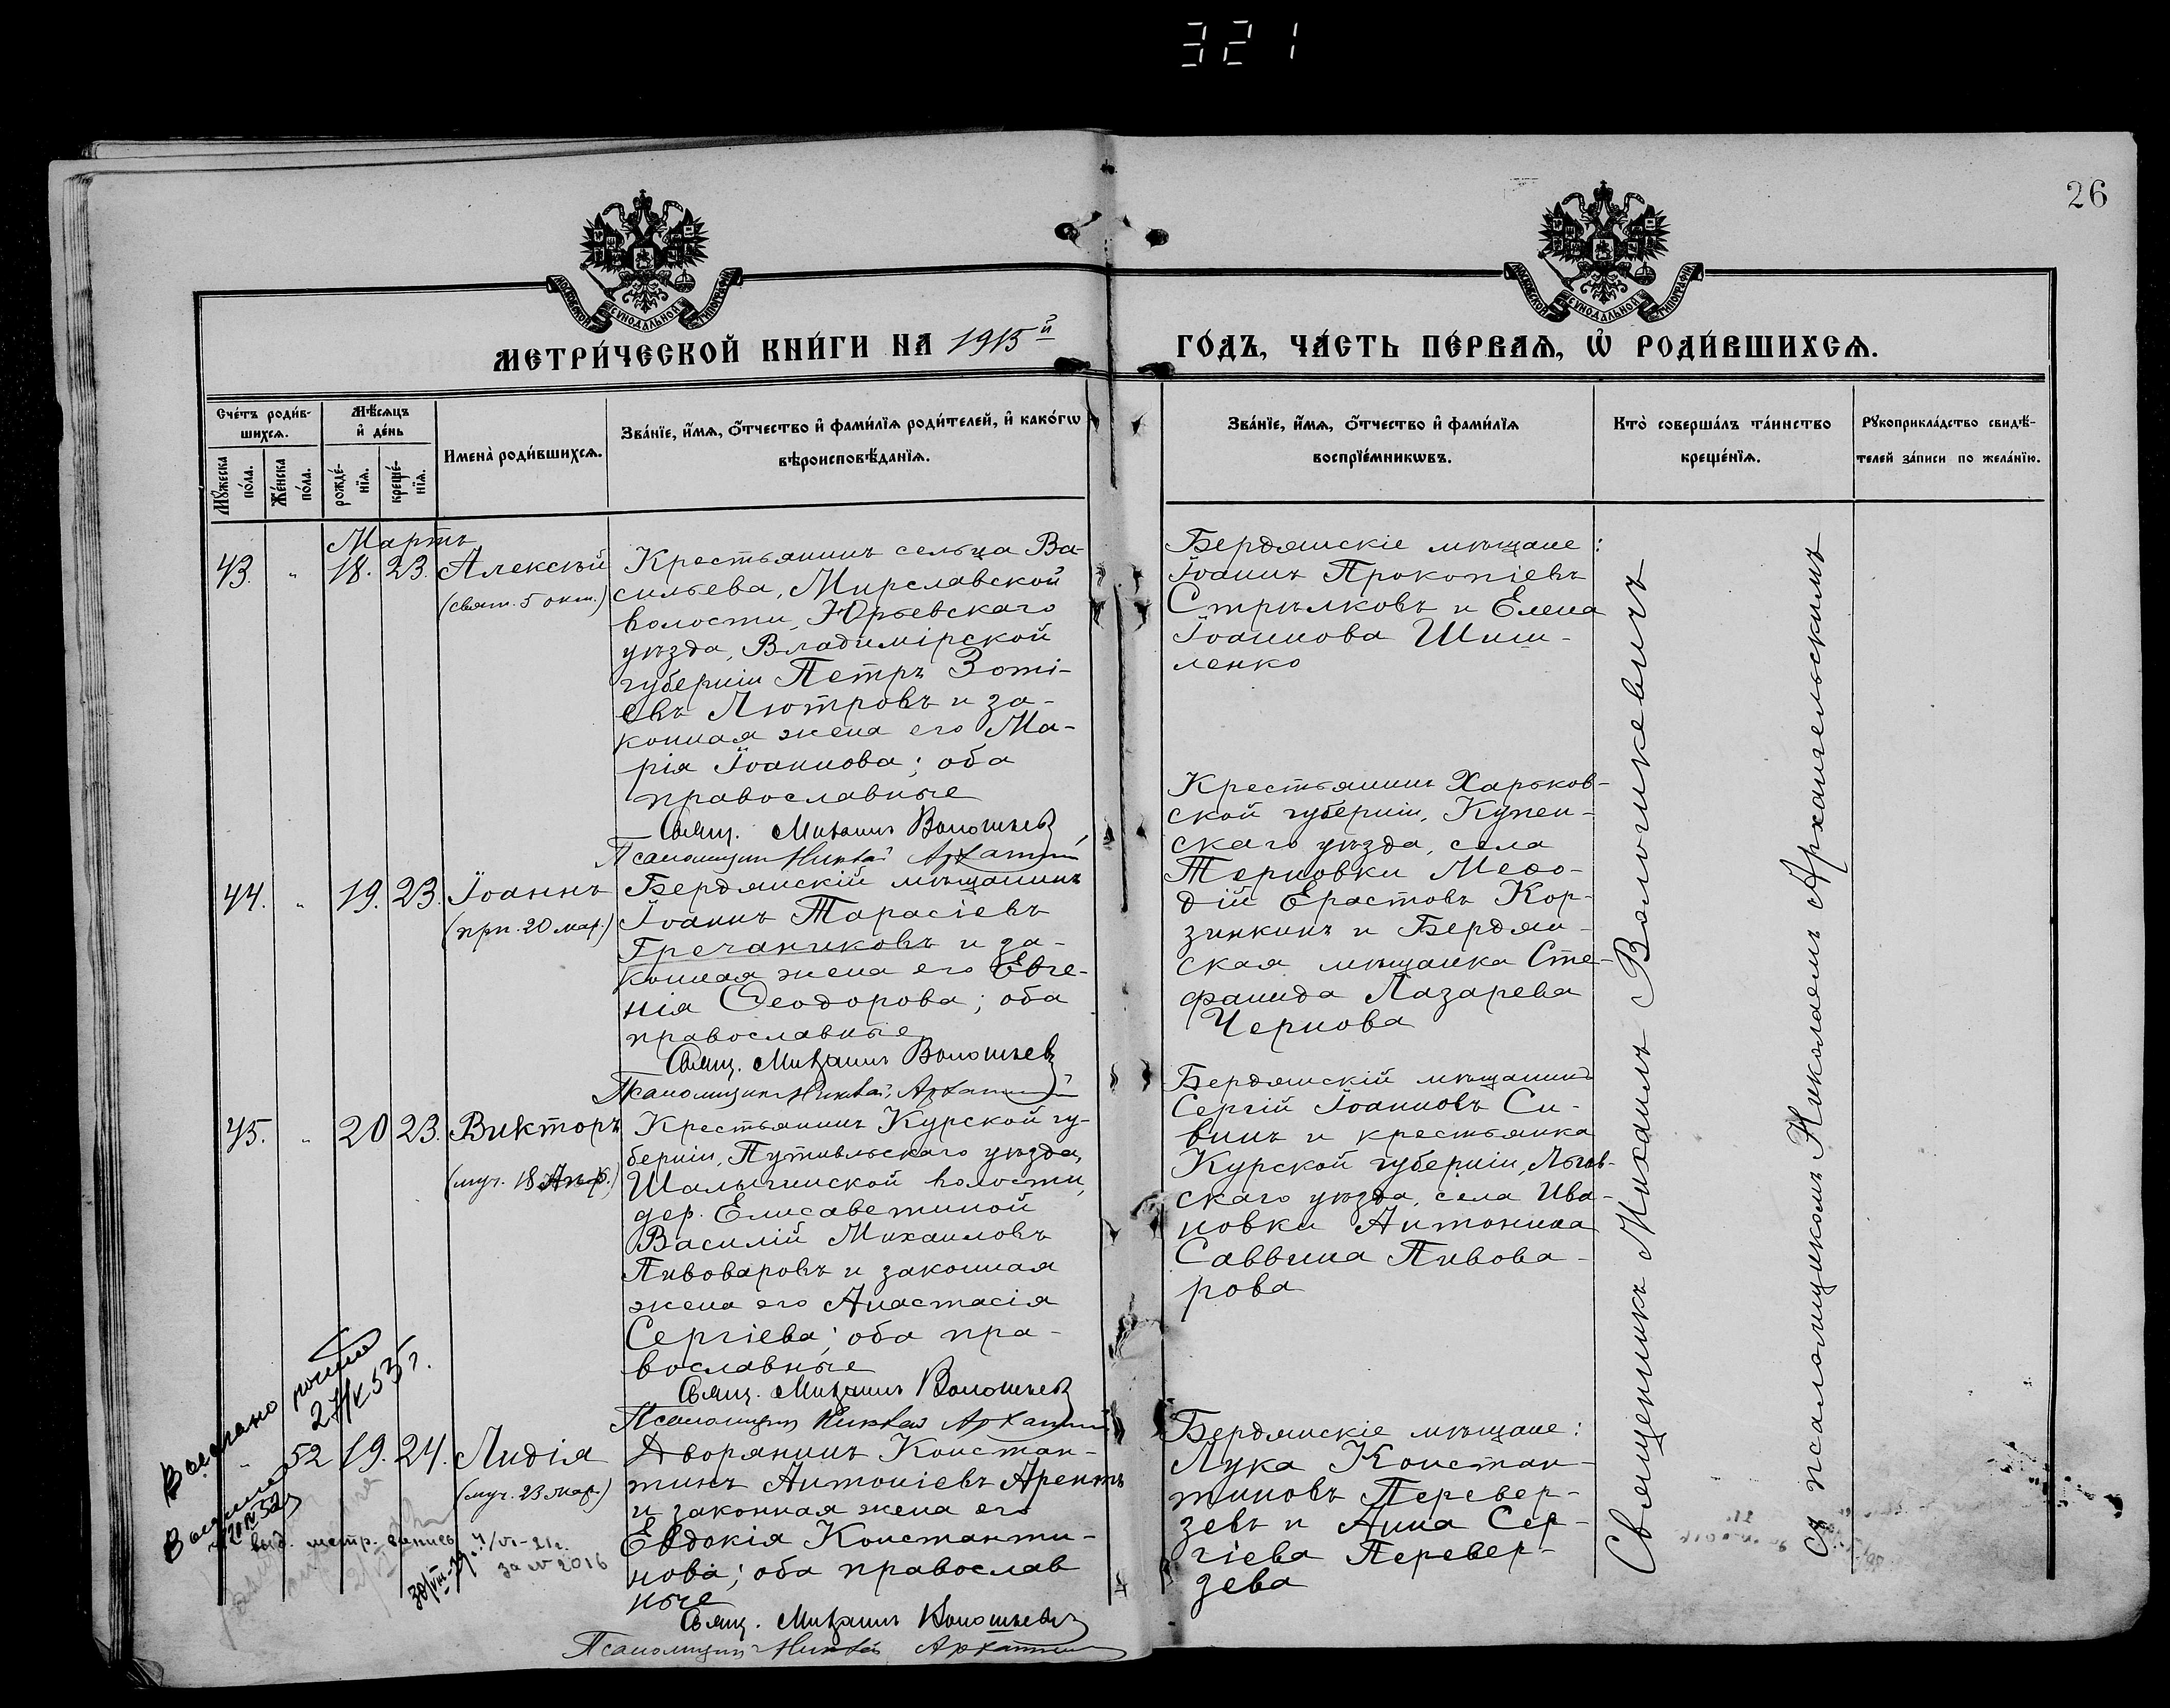 321
26
МЕТРИ́ЧЕСКОЙ КНИ́ГИ НА 1915й
ГО́ДЪ, ЧА́СТЬ ПЕ́РВАѦ, Ѡ РОДИ́ВШИХСѦ.
Сче́тъ роди́в-
шихсѧ.
Мꙋ́жеска
по́ла.
Же́нска
по́ла.
Мѣ́сѧцъ
и҆ де́нь
рожде́-
нїѧ.
креще́-
нїѧ.
Имена̀ роди́вшихсѧ.
Зва́нїе, и҆́мѧ, ѻ҆́тчество и҆ фами́лїѧ роди́телей, и҆ како́гѡ
вѣроисповѣ́данїѧ.
Зва́нїе, и҆́мѧ, ѻ҆́тчество и҆ фами́лїѧ
воспрїе́мникѡвъ.
Кто̀ соверша́лъ та́инство
креще́нїѧ.
Рꙋкоприкла́дство свидѣ́-
телей за́писи по жела́нїю.
Мартъ
43. " 18. 23. Алексѣй
(свят. 5 окт.)
Крестьянинъ сельца Ва-
сильева, Мирславской
волости, Юрьевскаго
уѣзда, Владимірской
губерніи Петръ Зоті-
евъ Лютровъ и за-
конная жена его Ма-
рія Іоаннова; оба
православные
Свящ. Михаилъ
Псаломщикъ Николай
Бердянскіе мѣщане:
Іоаннъ Прокопіевъ
Стрѣлковъ и Елена
Іоаннова Шиш-
ленко
44. " 19. 23. Іоаннъ
(прп. 20 мар.)
Бердянскій мѣщанинъ
Іоаннъ Тарасіевъ
Гречаниковъ и за-
конная жена его Евге-
нія Ѳеодорова; оба
православные
Свящ. Михаилъ
Псаломщикъ Николай
Крестьянинъ Харьков-
ской губерніи, Купен-
скаго уѣзда, села
Терновки Меѳо-
дій Ерастовъ Кор-
зинкинъ и Бердян-
ская мѣщанка Сте-
фанида Лазарева
Чернова
45. " 20 23. Викторъ
(муч. 18 Апр.)
Крестьянинъ Курской гу-
берніи, Путивльскаго уѣзда,
Шалыгинской волости,
дер. Елисаветиной
Василій Михаиловъ
Пивоваровъ и законная
жена его Анастасія
Сергіева; оба пра-
вославные
Свящ. Михаилъ
Псаломщикъ Николай
Бердянскій мѣщанинъ
Сергій Іоанновъ Си-
винъ и крестьянка
Курской губерніи, Льгов-
скаго уѣзда, села Ива-
новки Антонина
Саввина Пивова-
рова
" 52 19. 24. Лидія
(муч. 23 мар.)
Дворянинъ Констан-
тинъ Антоніевъ Арентъ
и законная жена его
Евдокія Константи-
нова; оба православ
ные
Свящ. Михаилъ
Псаломщикъ Николай
Бердянскіе мѣщане:
Лука Констан-
тиновъ Перевер-
зевъ и Анна Сер-
гіева Перевер-
зева
Священникъ Михаилъ Волошкевичъ
съ псаломщикомъ Николаемъ Архангельскимъ
выд. метр.
за № 2016